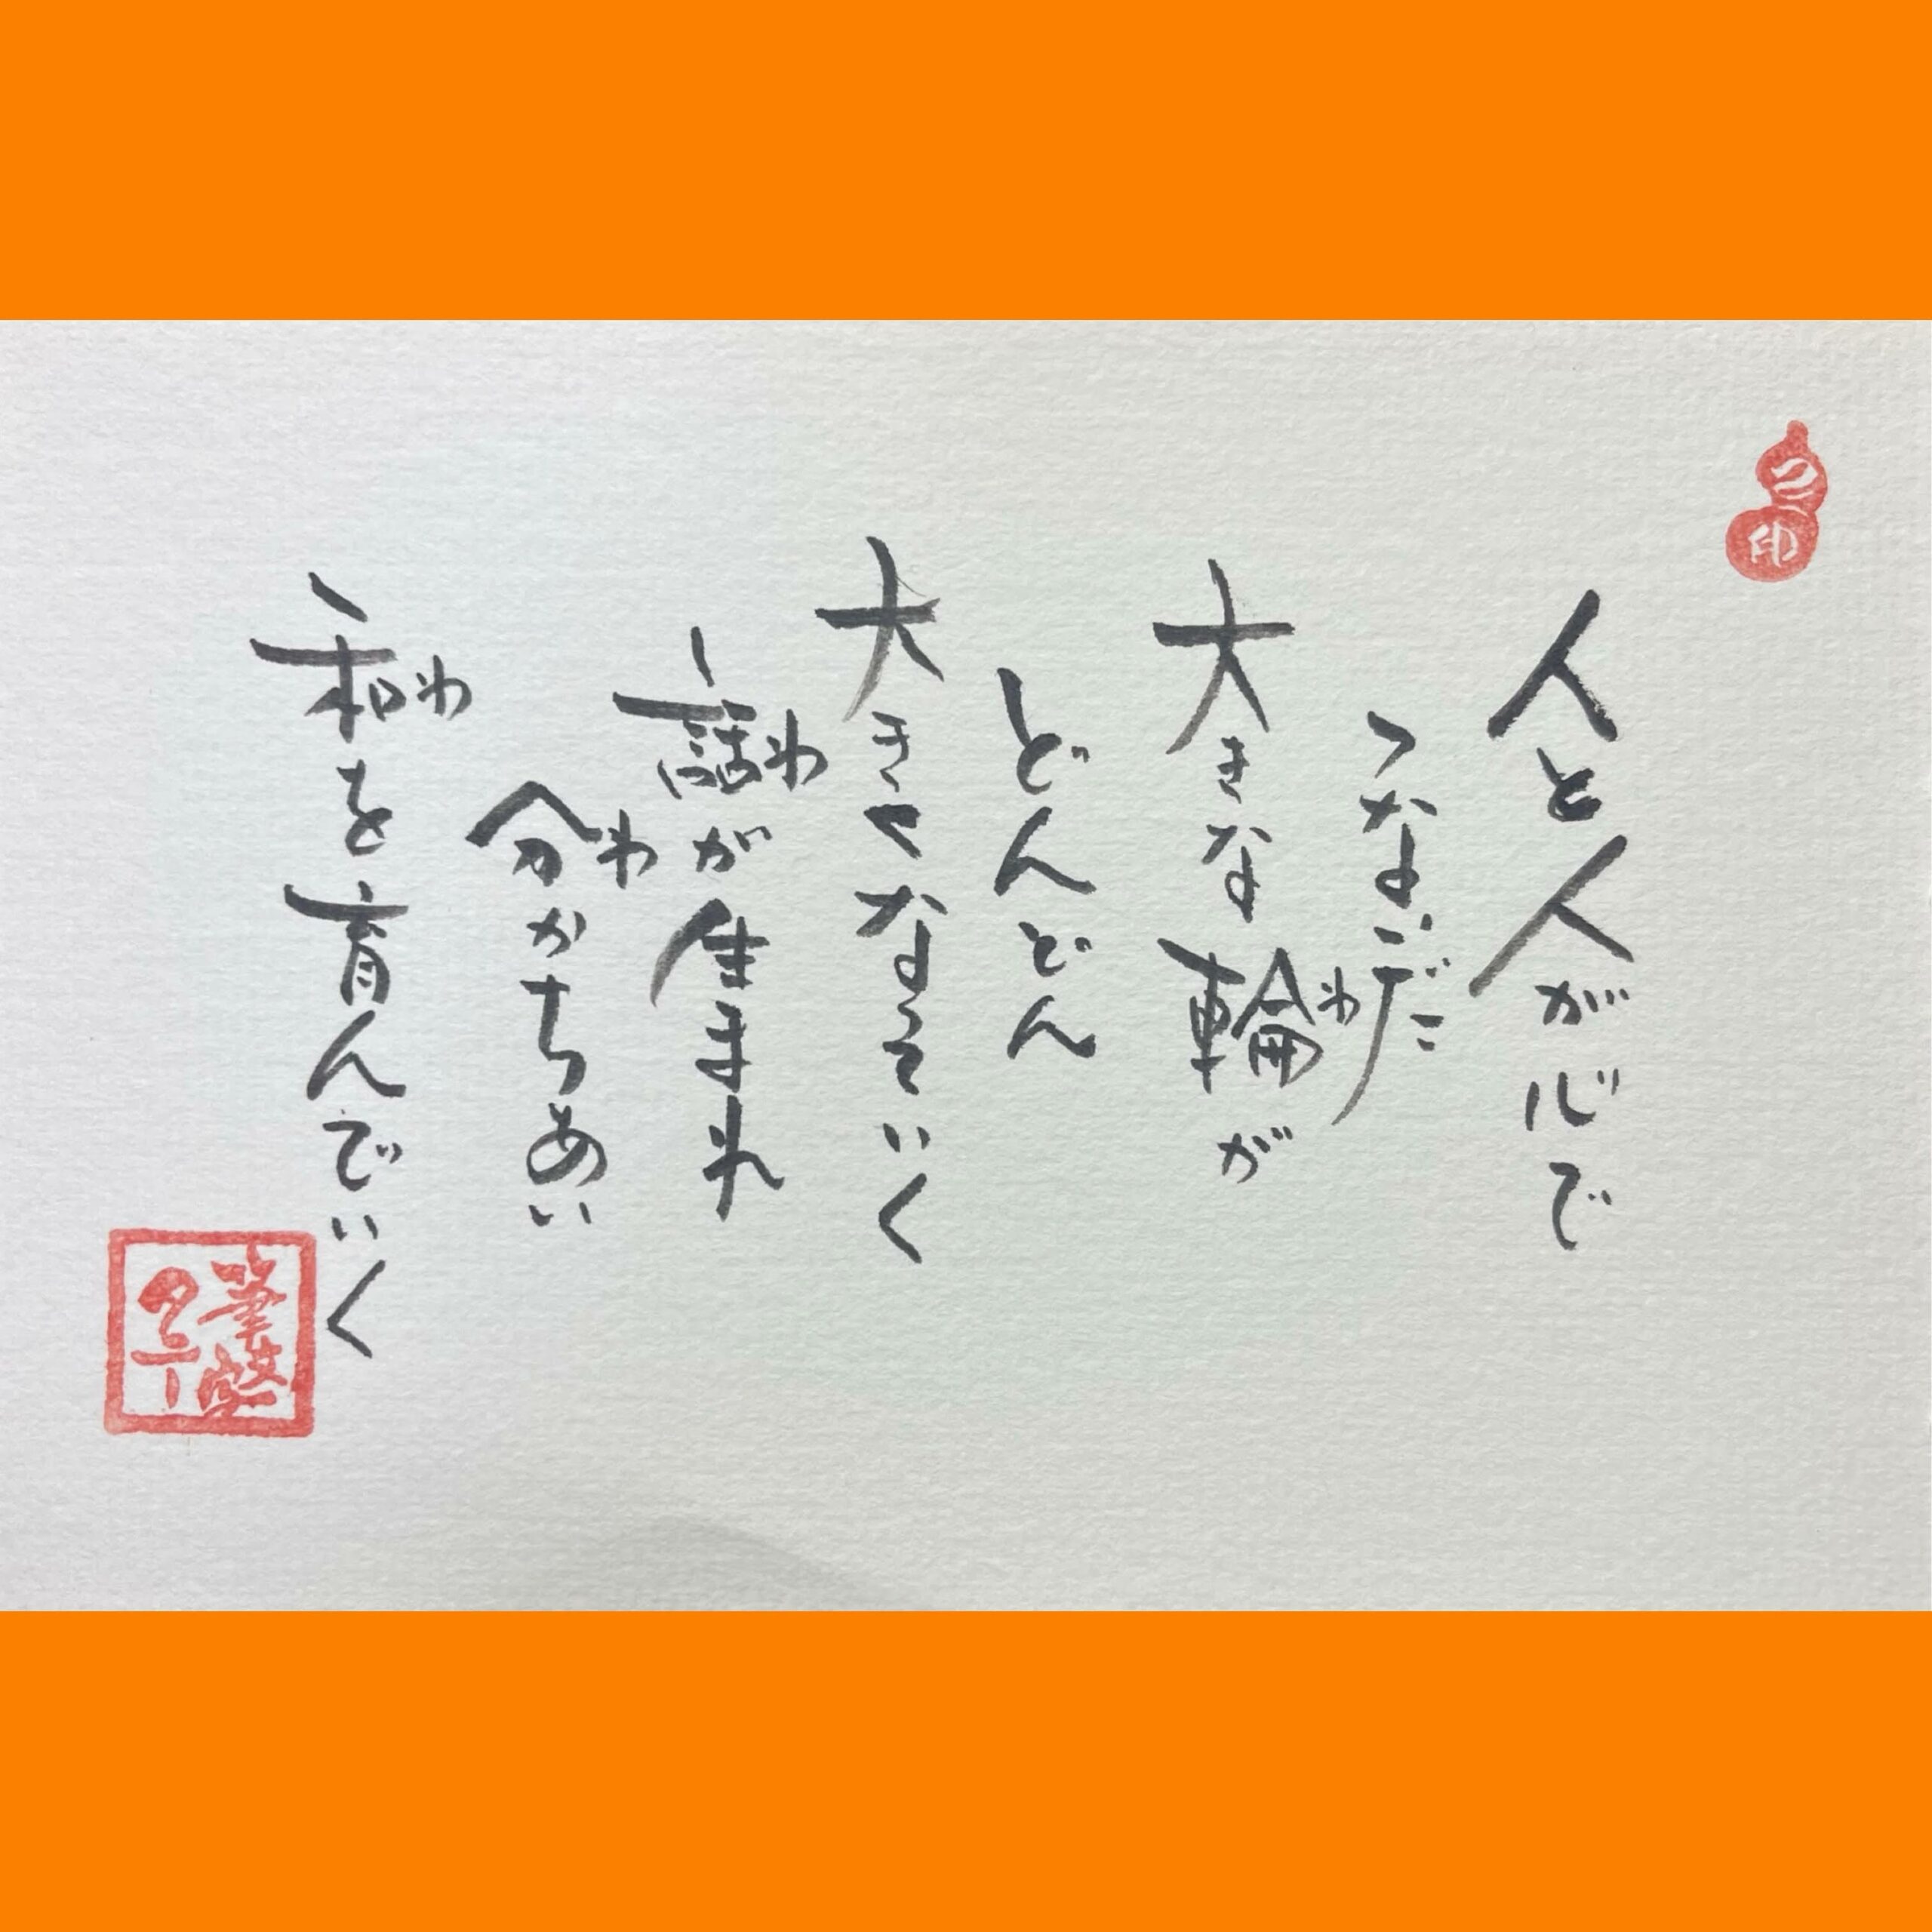 人と人が心で
つないだ
大きな輪わが
どんどん
大きくなっていく
話わが生まれ
分わかちあい
和わを育んでいく